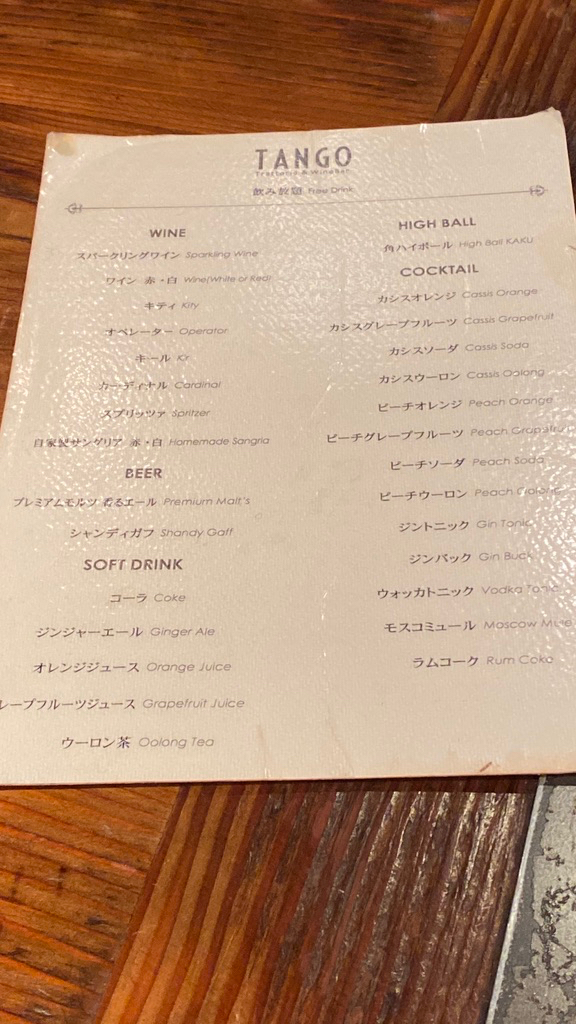 TANGO
Trattoria & Wine Bar
飲み放題 Free Drink
WINE
スパークリングワイン Sparkling Wine
ワイン 赤・白 Wine(White or Red)
キティ Kity
オペレーター Operator
キール Kir
カーディナル Cardinal
スプリッツァ Spritzer
自家製サングリア 赤・白 Homemade Sangria
BEER
プレミアムモルツ 香るエール Premium Malt's
シャンディガフ Shandy Gaff
SOFT DRINK
コーラ Coke
ジンジャーエール Ginger Ale
オレンジジュース Orange Juice
レープフルーツジュース Grapefruit Juice
ウーロン茶 Oolong Tea
HIGH BALL
角ハイボール High Ball KAKU
COCKTAIL
カシスオレンジ Cassis Orange
カシスグレープフルーツ Cassis Grapefruit
カシスソーダ Cassis Soda
カシスウーロン Cassis Oolong
ピーチオレンジ Peach Orange
ピーチグレープフルーツ Peach Grapefrui
ピーチソーダ Peach Soda
ピーチウーロン Peach Oolong
ジントニック Gin Tonic
ジンバック Gin Buck
ウォッカトニック Vodka Tonic
モスコミュール Moscow Mule
ラムコーク Rum Coke